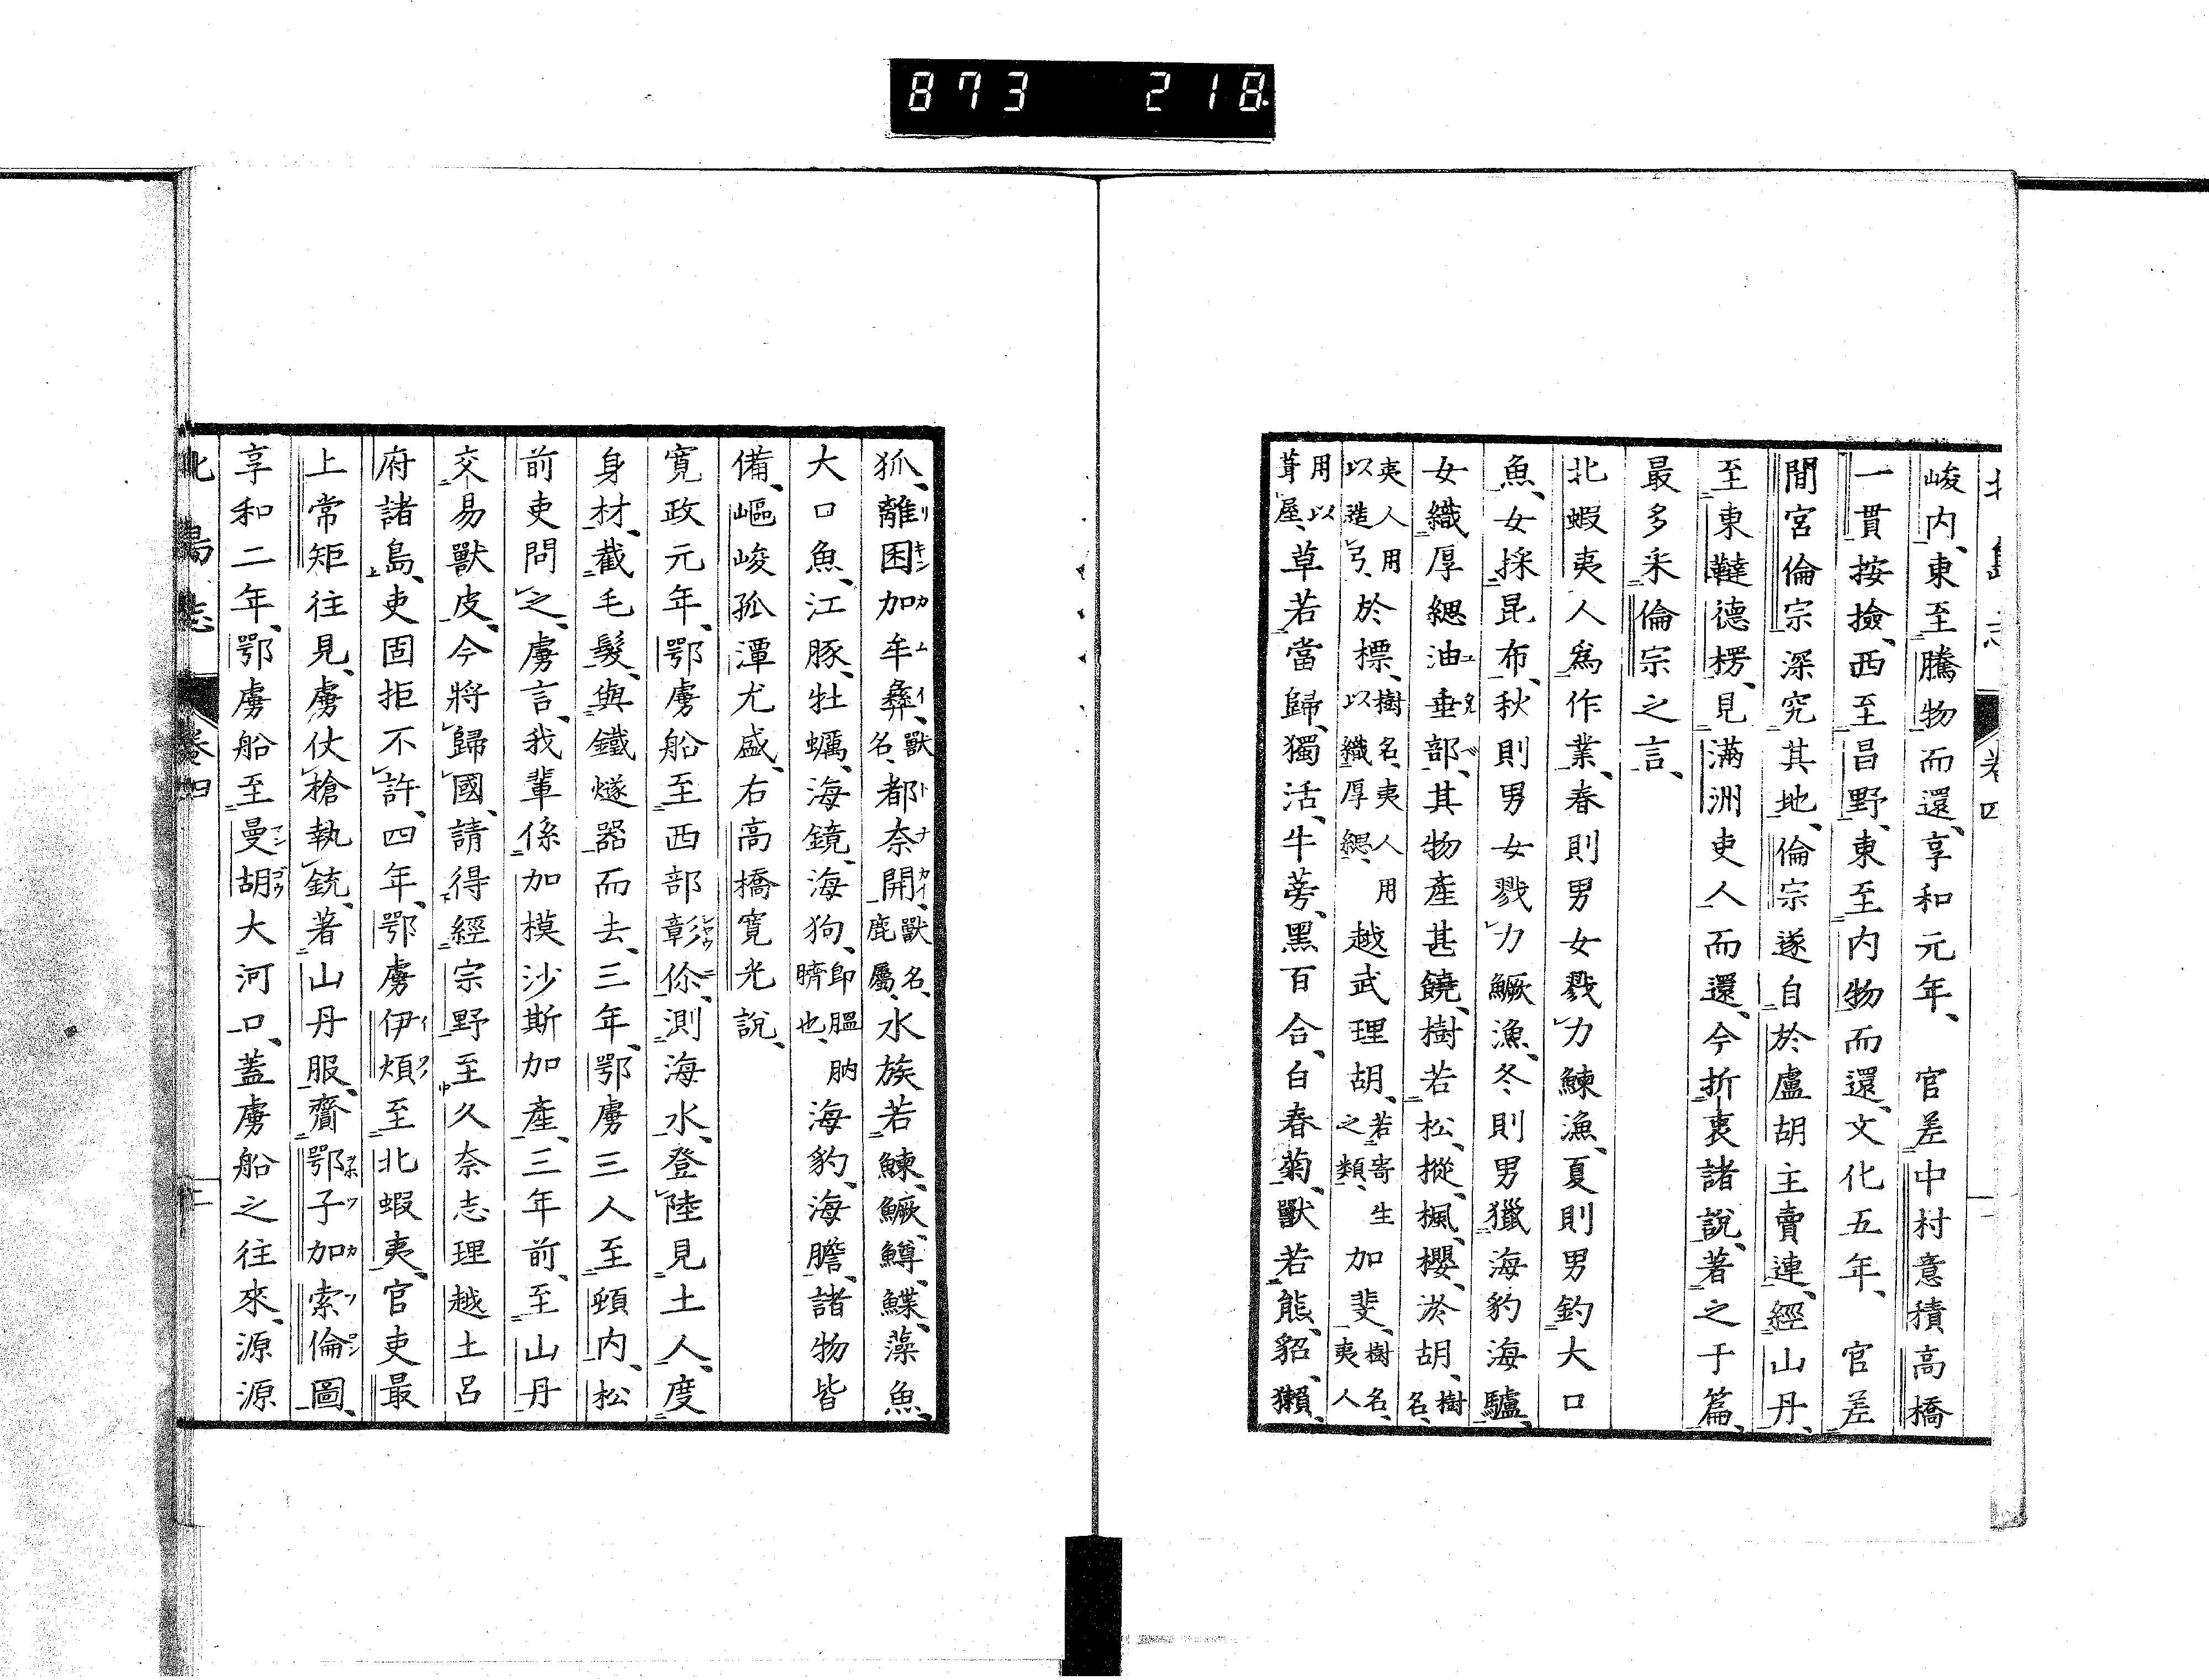 873 218
北島志 卷四
峻内、東至騰物而還、享和元年、 官差中村意積高橋
一貫按撿、西至昌野、東至内物而還、文化五年、 官差
間宮倫宗深究其地、倫宗遂自於盧胡主賣連、經山丹、
至東韃德楞、見滿洲吏人而還、今折衷諸說、著之于篇、
最多采倫宗之言、
北蝦夷人爲作業、春則男女戮力鰊漁、夏則男釣大口
魚、女採昆布、秋則男女戮力鱖漁、冬則男獵海豹海驢、
女織厚緦油垂部、其物產甚饒、樹若松、樅、楓、櫻、淤胡、樹名、
夷人用以造弓、於標、樹名、夷人用以織厚緦、越武理胡、若寄生之類、加斐、樹名、夷人
用以葺屋、草若當歸、獨活、牛蒡、黑百合、白春菊、獸若熊、貂、獺、
狐、離困加牟彝、獸名、都奈開、獸名、鹿屬、水族若鰊、鱖、鱒、鰈、藻魚、
リキンカムイ トナカイ
大口魚、江豚、牡蠣、海鏡、海狗、卽膃肭臍也、海豹、海膽、諸物皆
備、嶇峻孤潭尤盛、右高橋寬光說、
寬政元年、鄂虜船至西部彰尒、測海水、登陸見土人、度
身材、截毛髮、與鐵燧器而去、三年、鄂虜三人至頚内、松
前吏問之、虜言、我輩係加模沙斯加產、三年前、至山丹
交易獸皮、今將歸國、請得經宗野至久奈志理越土呂
府諸島、吏固拒不許、四年、鄂虜伊煩至北蝦夷、官吏最
上常矩往見、虜仗槍執銃、著山丹服、齎鄂子加索倫圖、
享和二年、鄂虜船至曼胡大河口、蓋虜船之往來、源源
マンゴウ
北島志 卷四 二